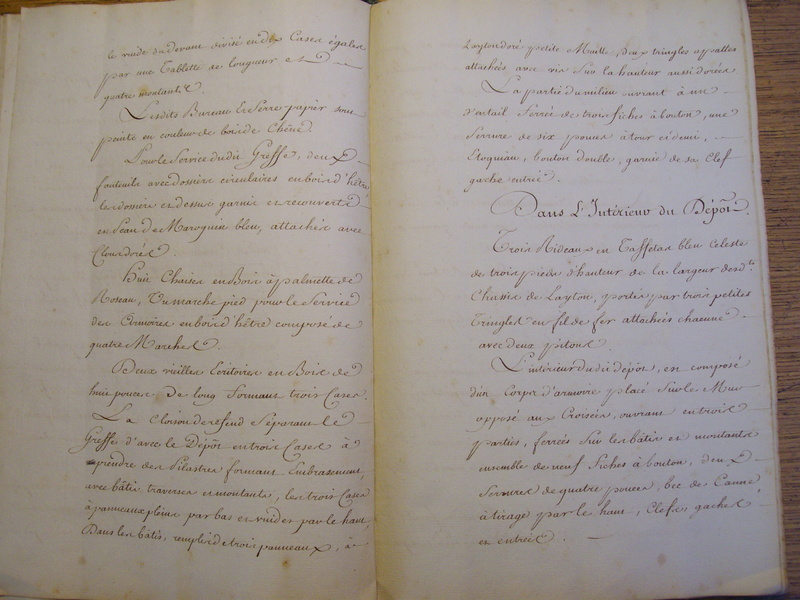 le vuide du devant divisé en dix Cases égales
par une Tablette de longueur et
quatre montants.
Lesdits Bureau Et Serre papier sont
peints en couleur de bois de Chêne.
Pour le Service dudit Greffe, deux
fauteuils avec dossiers circulaires en bois d'hêtre
les dossiers et dessus garnis et recouverts
en Peau de Maroquin bleu, attachés avec
Clous dorés.
Huit Chaises en Bois à palmette de
Roseau, Un marche pied pour le Service
des Armoires en bois d'hêtre composé de
quatre Marches.
Deux vieilles Ecritoires en Bois de
huit pouces De long formant trois Cases
La Cloison de refend Séparant le
Greffe d'avec le Dépôt en trois Cases à
prendre des Pilastres formant Embrasement,
avec bâtis, traverses et montants, les trois Cases
à panneaux pleins par bas et vuides par le haut,
Dans les bâtis, remplie de trois panneaux, à
Layton doré petite Maille, deux tringles applattes
attachées avec vis Sur la hauteur aussi dorées
La partie du milieu ouvrant à un
Ventail Ferrée de trois fiches à bouton, une
Serrure de six pouces à tour et demi,
Etoquiau, bouton double, garnie de sa Clef
gache entrée.
Dans L'Intérieur du Dépôt.
Trois Rideaux en Taffetas bleu Celeste
de trois pieds d'hauteur de la largeur desd.ts
Chassis de Layton, portés par trois petites
Tringles en fil de fer attachées chacune
avec deux pitons.
L'intérieur dudit dépôt, est composé
d'un Corps d'armoire placé Sur le Mur
opposé aux Croisées, ouvrant en trois
parties, ferrées Sur les bâtis et montants
ensemble de neuf fiches à bouton, deux
Serrures de quatre pouces, bec de Canne
à tirage par le haut, Clefs, gaches,
et entrées.